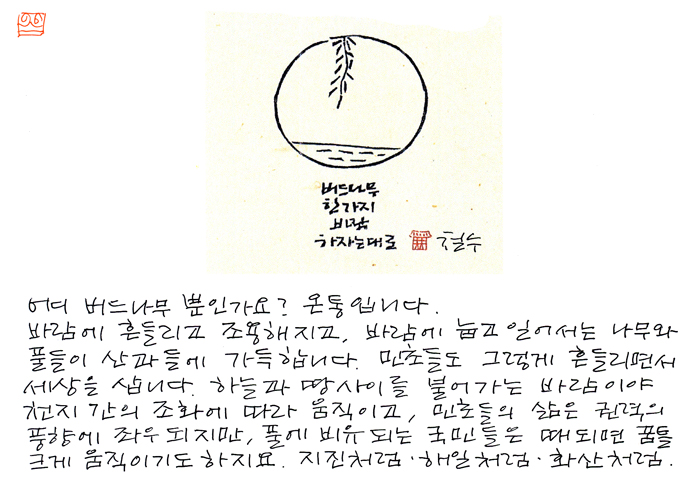 버드나무
한 가지
바람
하자는대로
철수
어디 버드나무 뿐인가요? 온통입니다.
바람에 흔들리고 조용해지고, 바람에 눕고 일어서는 나무와
풀들이 산과 들에 가득합니다. 민초들도 그렇게 흔들리면서
세상을 삽니다. 하늘과 땅사이를 불어가는 바람이야
천지간의 조화에 따라 움직이고, 민초들의 삶은 권력의
풍향에 좌우되지만, 풀에 비유되는 국민들은 때되면 꿈틀
크게 움직이기도 하지요. 지진처럼·해일처럼·화산처럼.